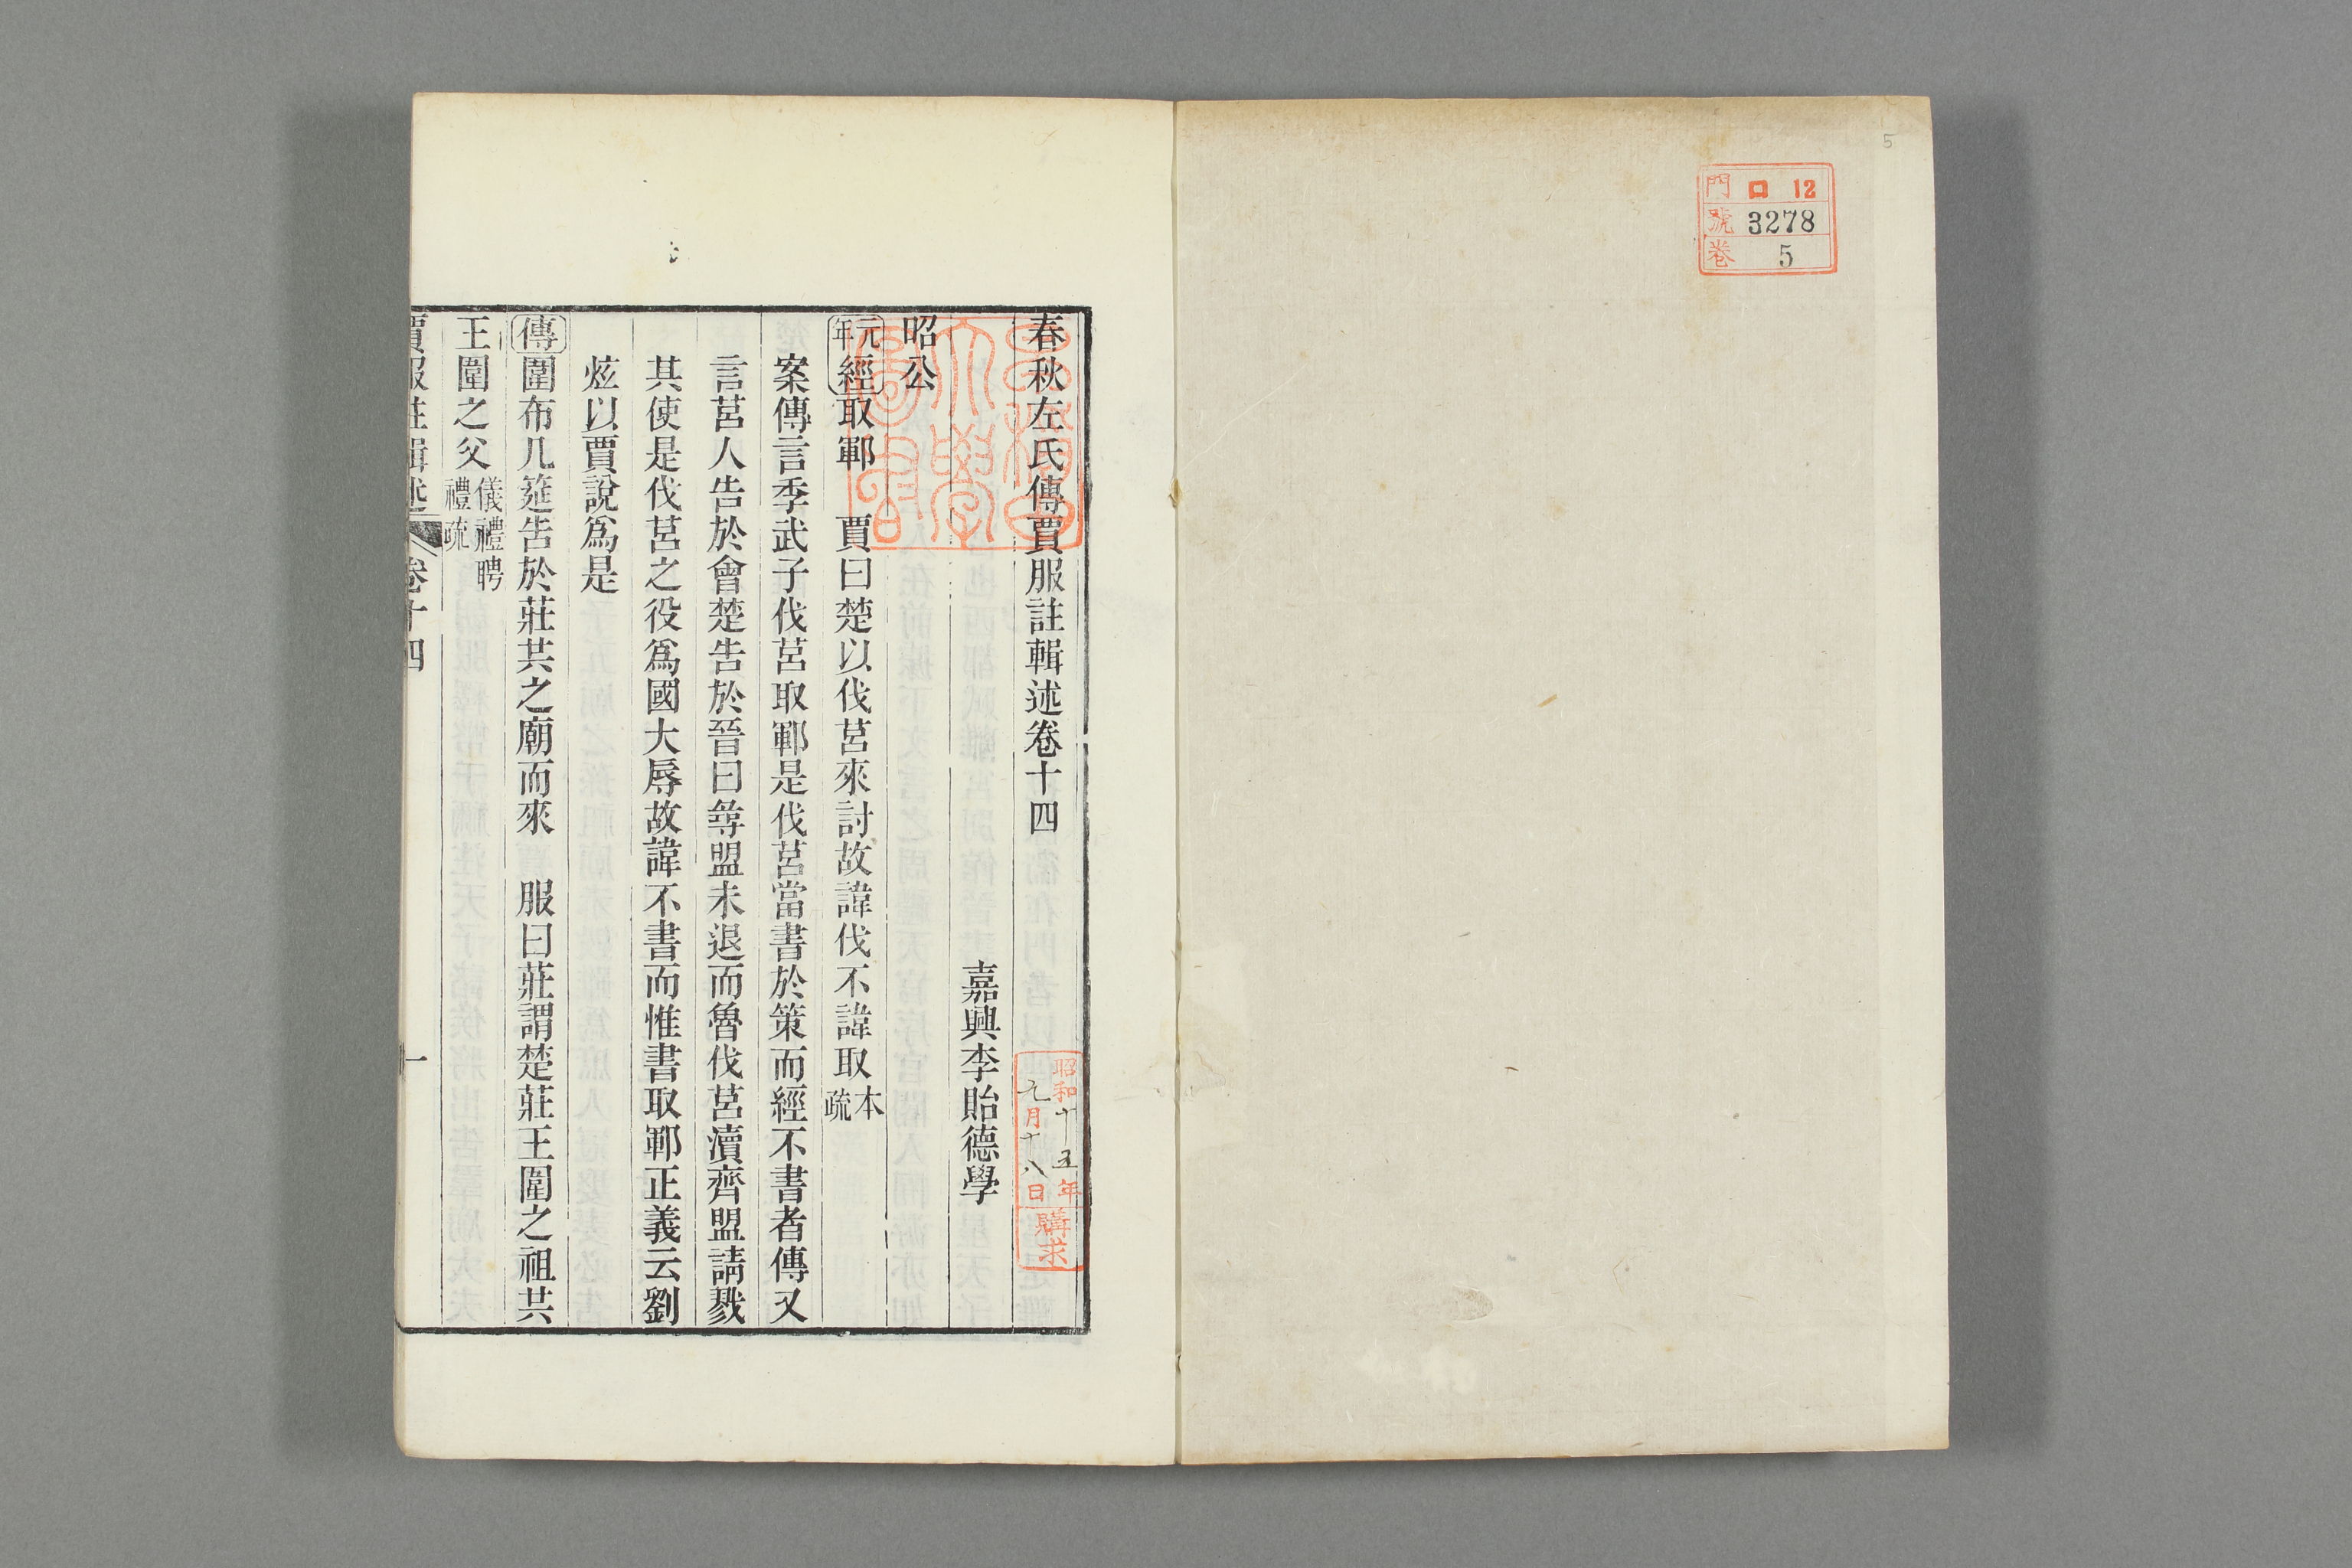 5
門 口 12
號 3278
卷 5
春秋左氏傳賈服註輯述卷十四
嘉興李貽德學
昭和十五年
九月十八日
購求
早稻田
大學
圖書
昭公
元年 經 取鄆 賈曰楚以伐莒來討故諱伐不諱取 本疏
案傳言季武子伐莒取鄆是伐莒當書於策而經不書者傳又
言莒人告於會楚告於晉曰尋盟未退而魯伐莒瀆齊盟請戮
其使是伐莒之役爲國大辱故諱不書而惟書取鄆正義云劉
炫以賈說爲是
傳 圍布几筵告於莊共之廟而來 服曰莊謂楚莊王圍之祖共
王圍之父 儀禮聘禮疏
賈服註輯述 卷十四 一